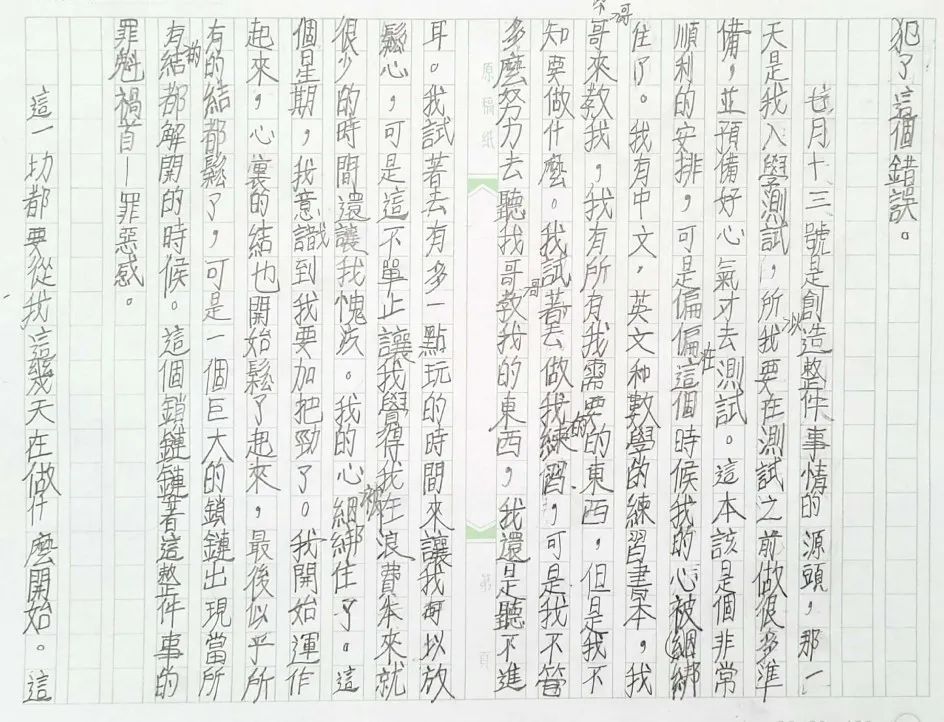 犯了這個錯誤。
七月十三號是創造整件事情的源頭，那一
天是我入學測試，所以我要在測試之前做很多準
備，並預備好心氣才去測試。這本該是個非常
順利的安排，可是偏偏在這個時候我的心被綑綁
住了。我有中文，英文和數學的練習書本，我
哥哥來教我，我有所有我需要的東西，但是我不
知要做什麼。我試著去做我的練習，可是我不管
多麼努力去聽我哥哥教我的東西，我還是聽不進
耳。我試著去有多一點玩的時間來讓我可以放
鬆心，可是這不單止讓我覺得我在浪費本來就
很少的時間還讓我愧疚。我的心被綑綁住了。這
個星期，我意識到我要加把勁了。我開始運作
起來，心裏的結也開始鬆了起來，最後似乎所
有的結都鬆了，可是一個巨大的鎖鏈出現當所
有的結都解開的時候。這個鎖鏈鏈著這整件事的
罪魁禍首—罪惡感。
這一切都要從我這幾天在做什麼開始。這
原稿紙
第 頁